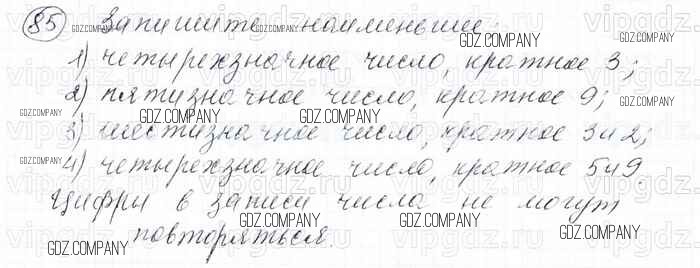 85 Запишите наименьшее:
1) четырехзначное число, кратное 3;
2) пятизначное число, кратное 9;
3) шестизначное число, кратное 3 и 2;
4) четырехзначное число, кратное 5 и 9.
Цифры в записи числа не могут
повторяться.